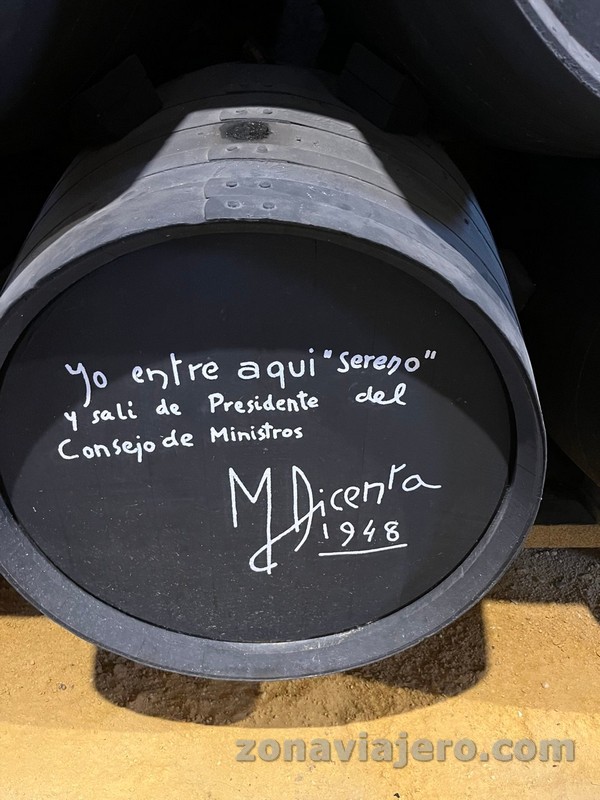 Yo entre aqui "sereno"
y sali de Presidente del
Consejo de Ministros
M Dicenta
1948
zonaviajero.com